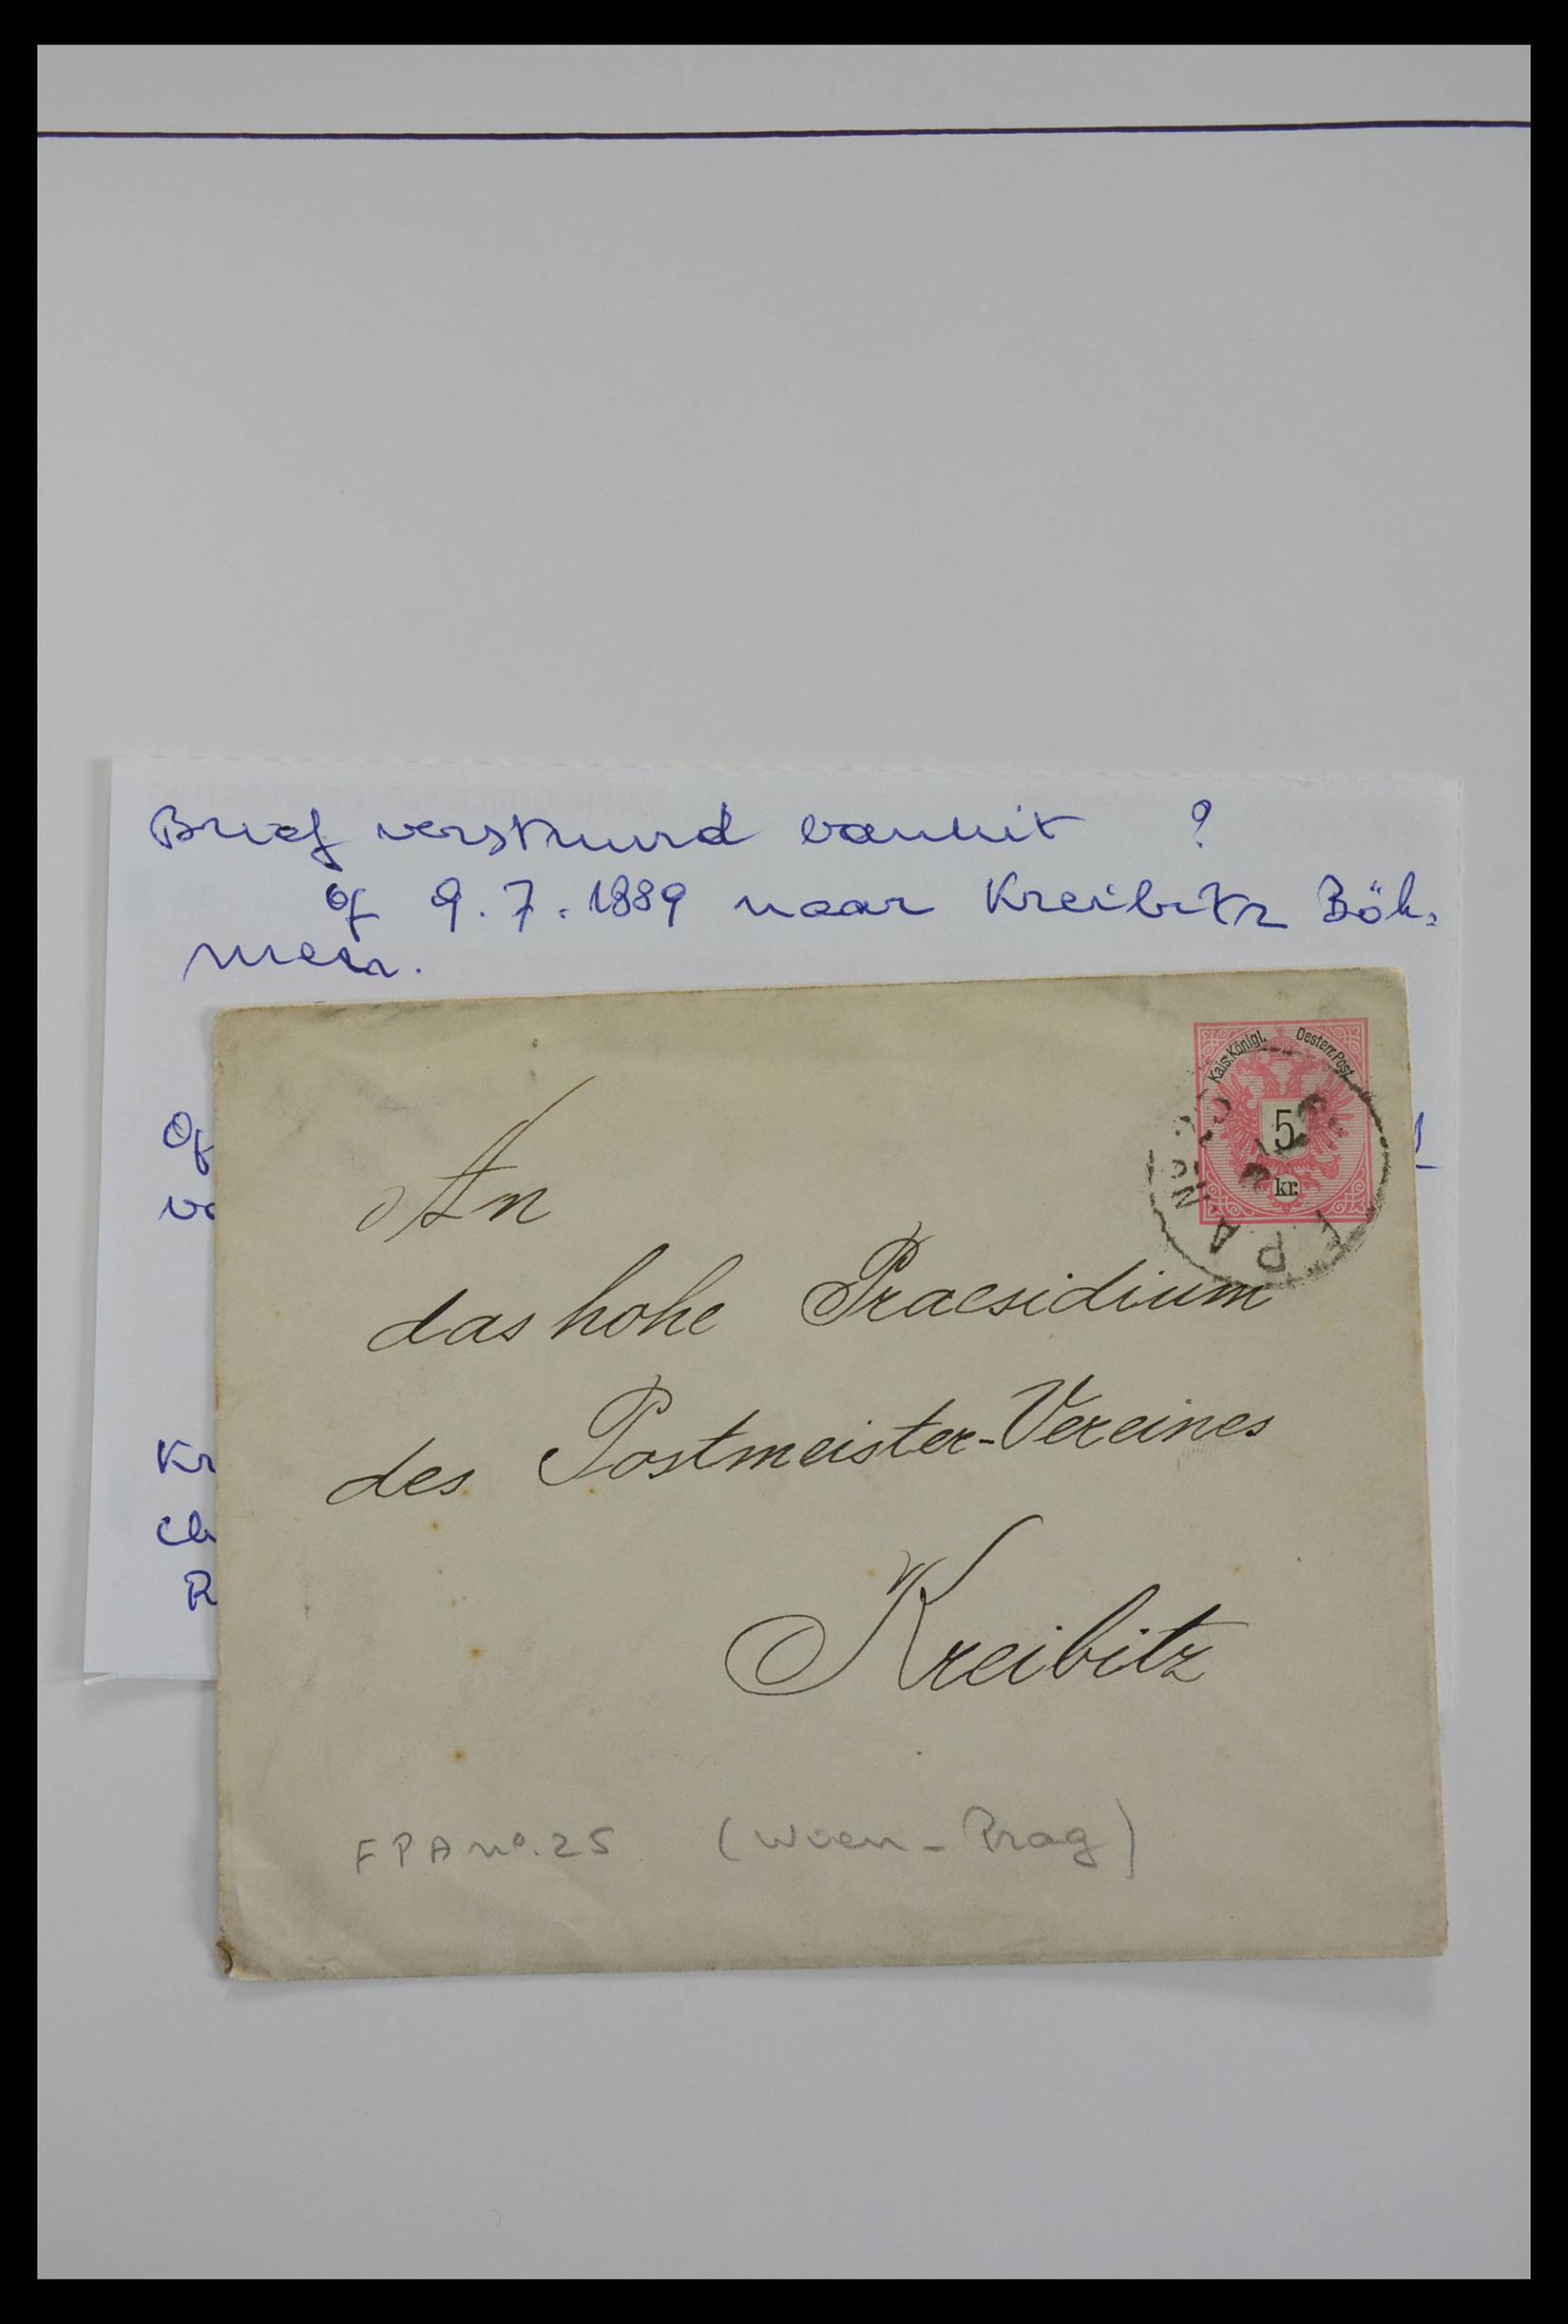 Brief verstuurd vanuit ?
op 9.7.1889 naar Kreibitz Böh-
men.
Op
va
Kr
R
Kais. Königl. Oesterr. Post
5
kr.
FPA No 25
An
das hohe Praesidium
des Postmeister-Vereines
Kreibitz
FPA no. 25 (Wien - Prag)